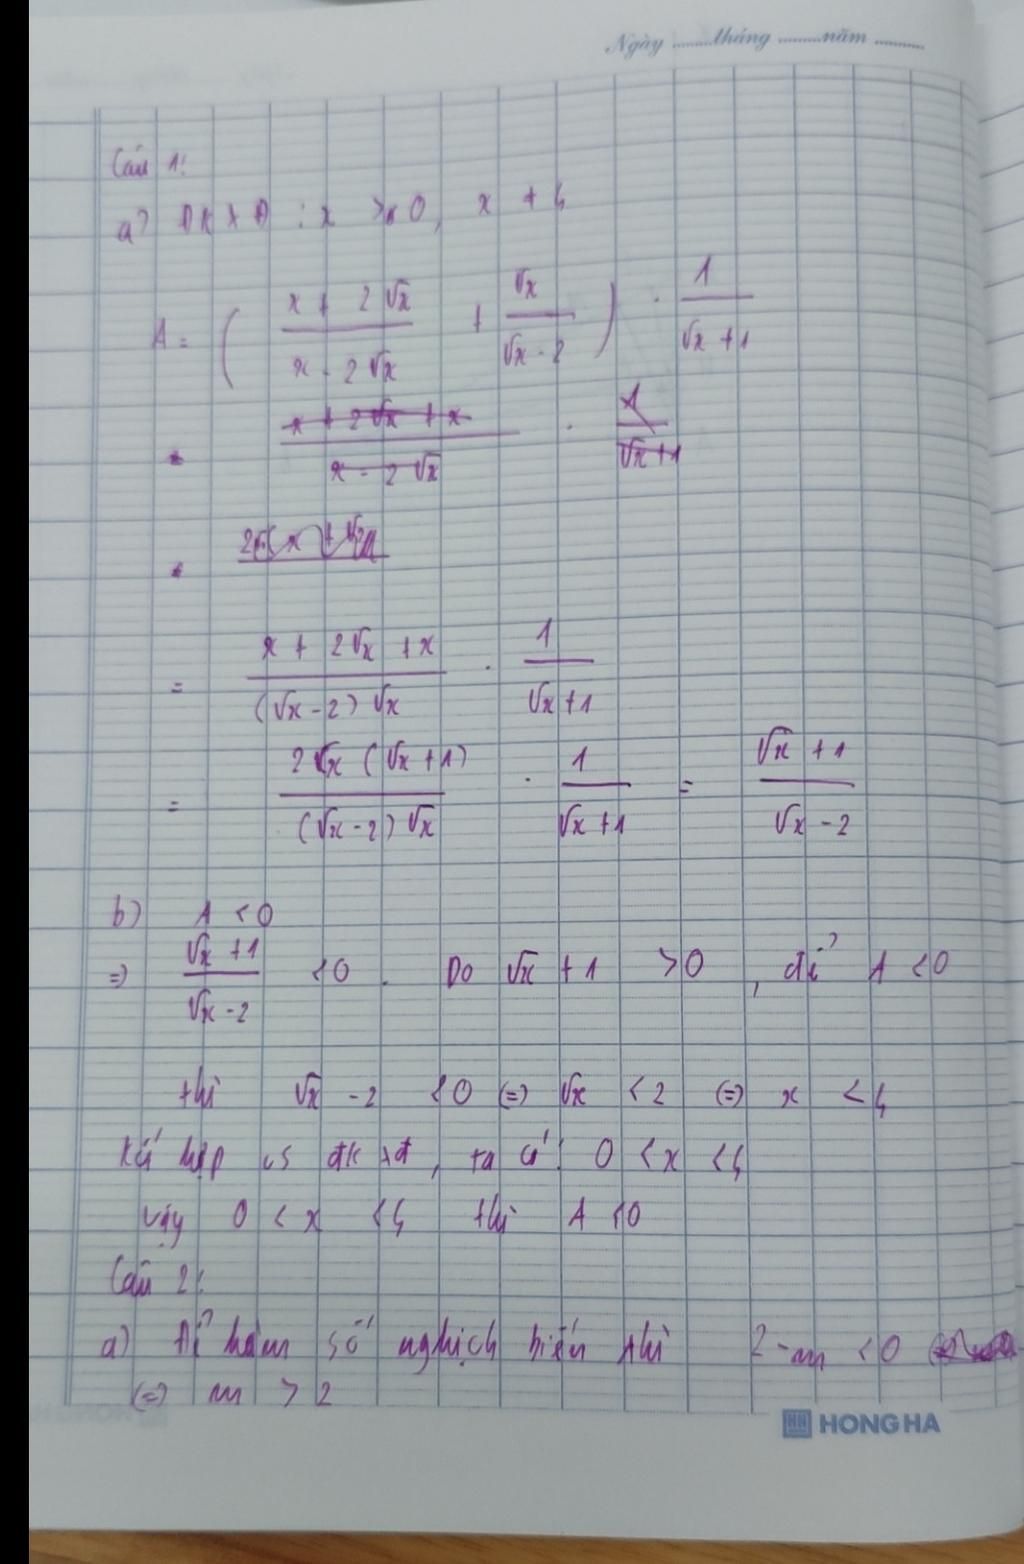 Ngày ........tháng .........năm ..........
Câu 1:
a) ĐKXĐ : x > 0, x ≠ 4
A = ( x + 2√x / x - 2√x + √x / √x - 2 ) . 1 / √x + 1
x + 2√x + x / x - 2√x . 1 / √x + 1
= x + 2√x + x / (√x - 2) √x . 1 / √x + 1
= 2√x (√x + 1) / (√x - 2) √x . 1 / √x + 1 = √x + 1 / √x - 2
b) A < 0
=> √x + 1 / √x - 2 < 0 . Do √x + 1 > 0 , để A < 0
thì √x - 2 < 0 <=> √x < 2 <=> x < 4
Kết hợp vs đkxđ, ta có: 0 < x < 4
Vậy 0 < x < 4 thì A < 0
Câu 2:
a) Để hàm số nghịch biến thì 2 - m < 0
<=> m > 2
HONG HA